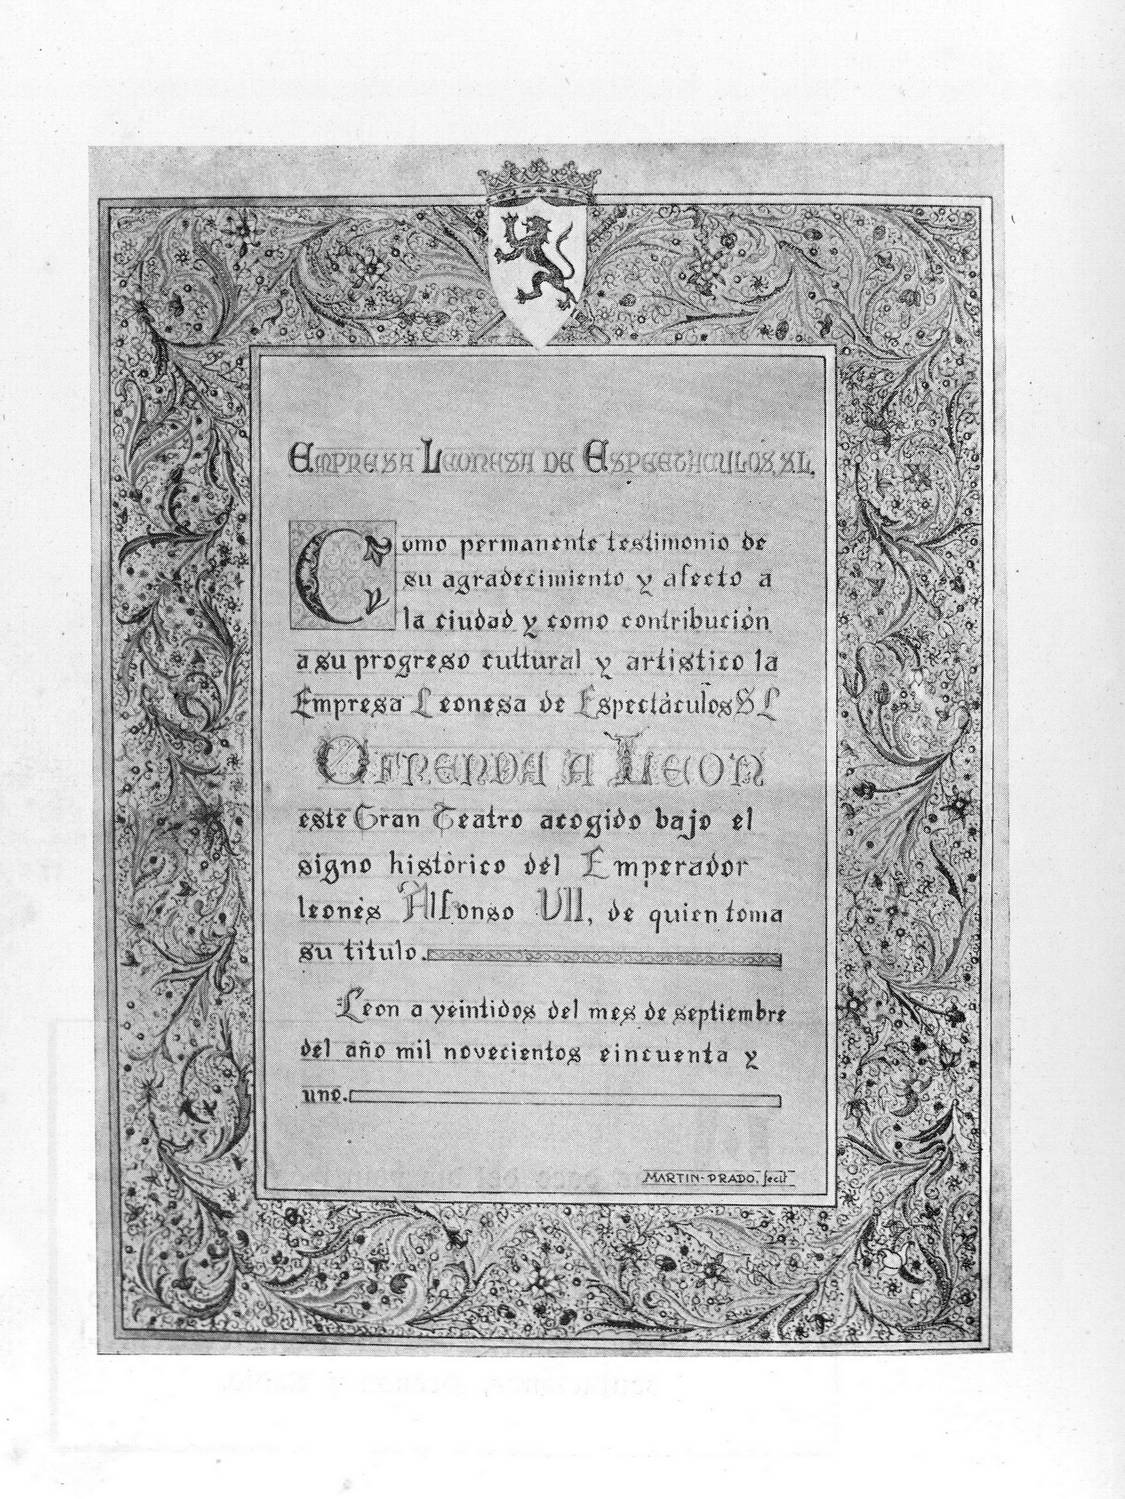 EMPRESA LEONESA DE ESPECTACULOS, S.L.
Como permanente testimonio de
su agradecimiento y afecto a
la ciudad y como contribución
a su progreso cultural y artistico la
Empresa Leonesa de Espectáculos S L
OFRENDA A LEON
este Gran Teatro acogido bajo el
signo histórico del Emperador
leonés Alfonso VII, de quien toma
su titulo.
León a veintidos del mes de septiembre
del año mil novecientos cincuenta y
uno.
MARTIN-PRADO, fecit